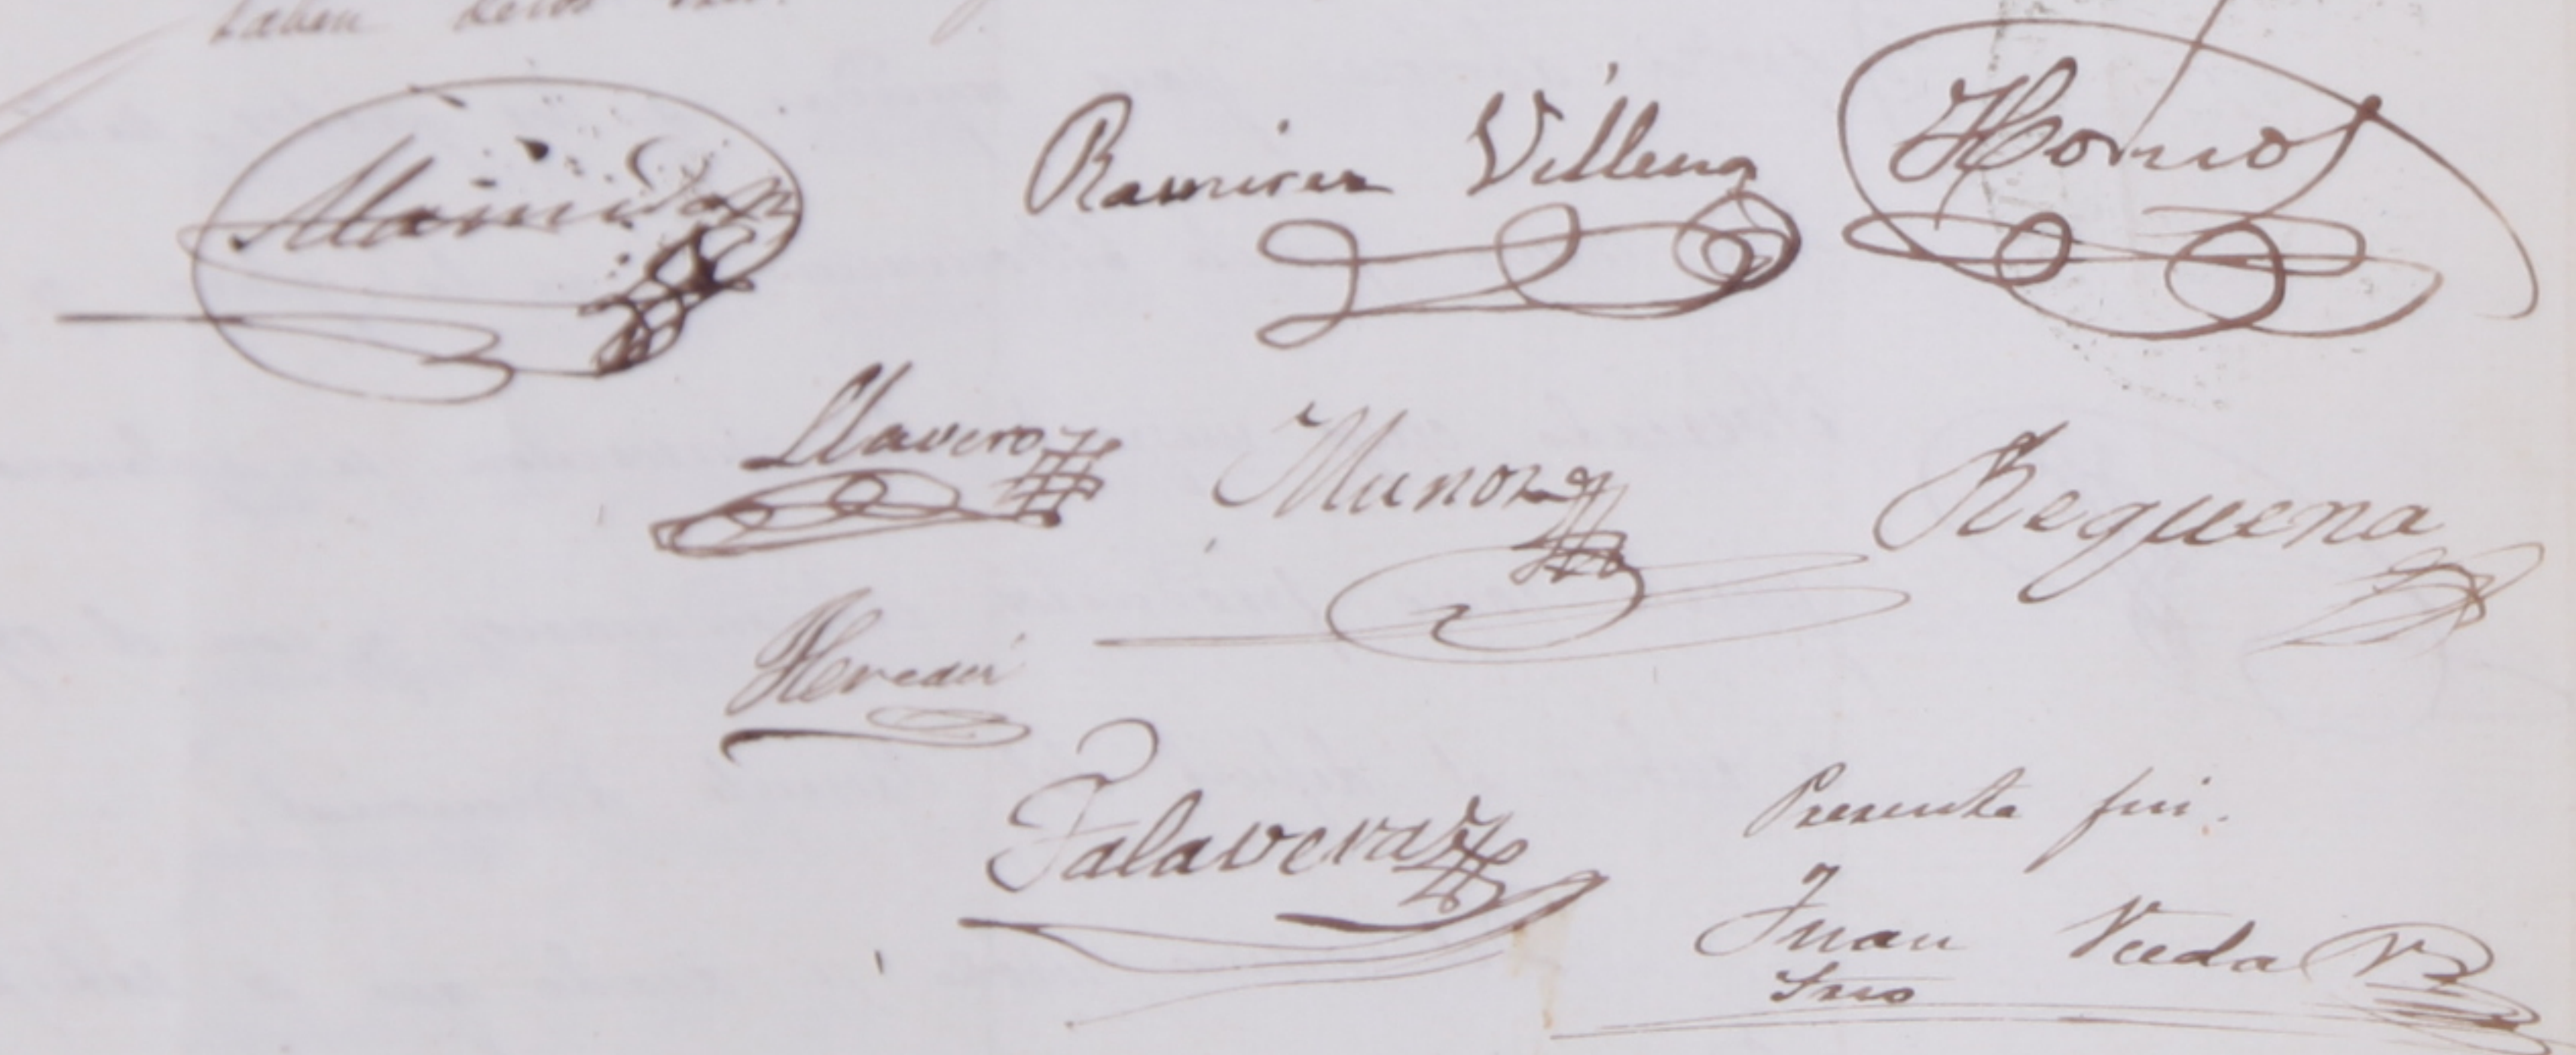 Ramirez Villena Hornos
Llavero Munoz Requena
Heredia
Talavera
Presente fui.
Juan Veeda
Srio